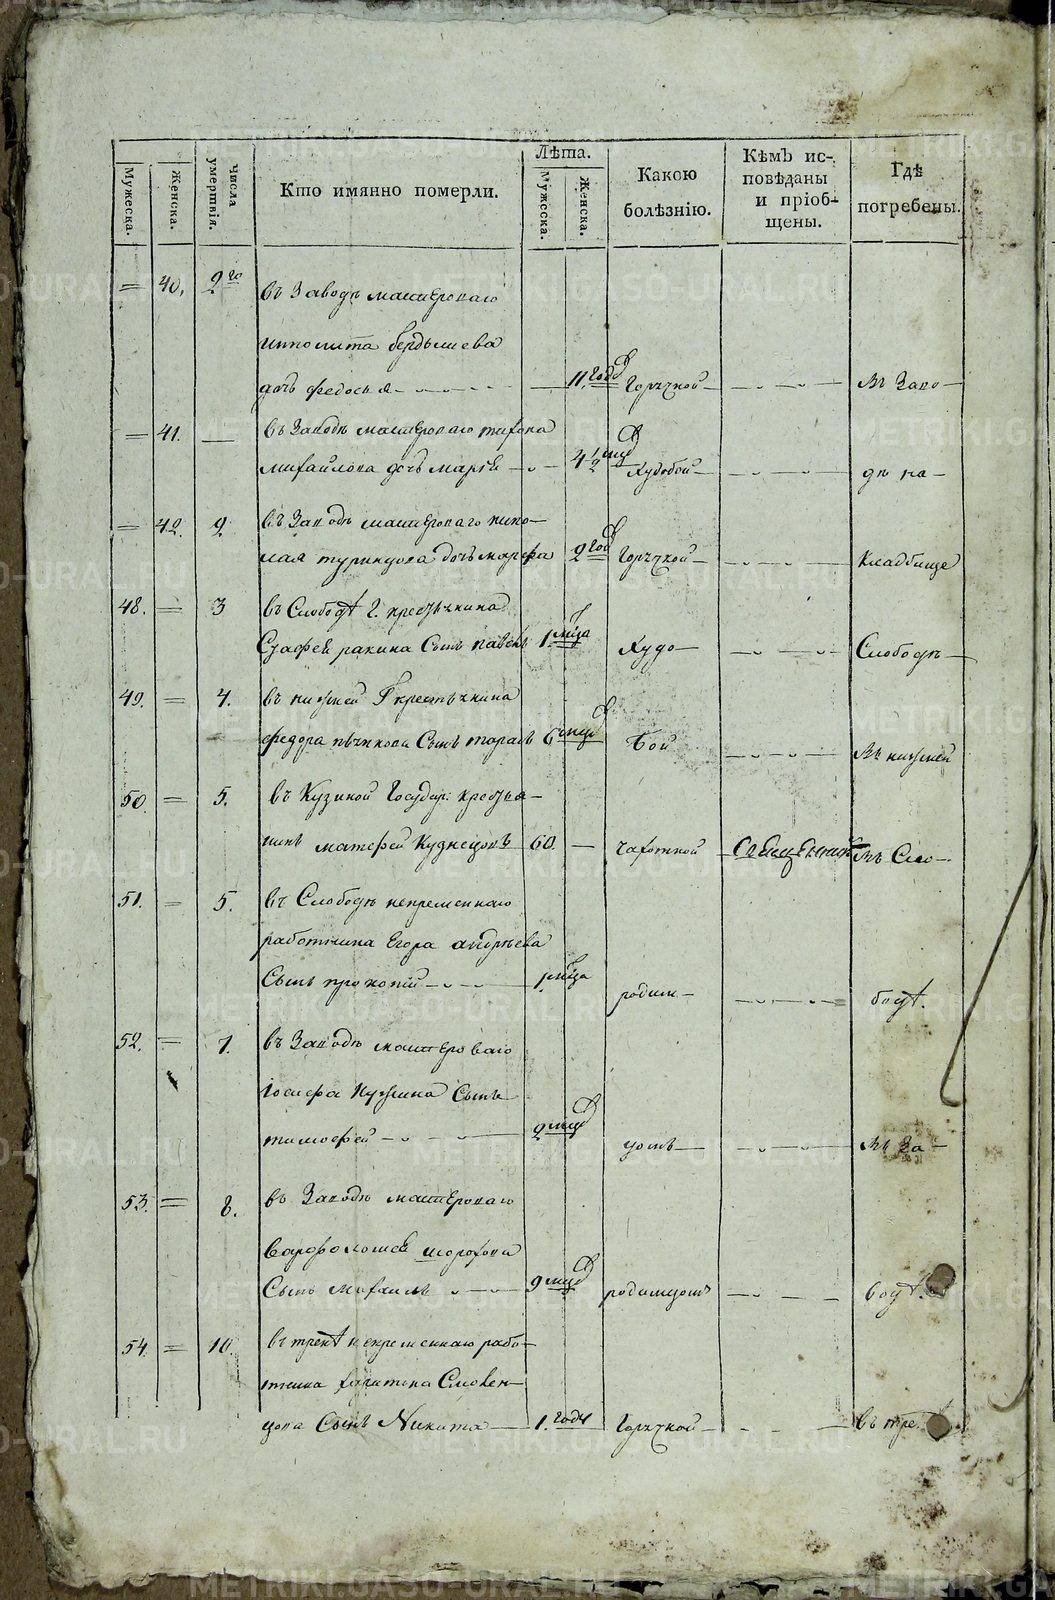 Мужеска.
Женска.
Числа умертвія.
Кто имянно померли.
Лѣта.
Мужеска.
Женска.
Какою болѣзнію.
Кѣмъ ис-
повѣданы
и пріоб-
щены.
Гдѣ
погребены.
40. 2го въ Заводѣ мастероваго
иполита бердышева
дочь федосья 11. годов Горячкой въ Заво-
41. въ Заводѣ мастероваго тихона
михайлова дочь марѳ 4 1/2 мцов Худобой дѣ на
42. 2 въ Заводѣ мастероваго нико-
лая дочь марфа 2 год Горячкой кладбище
48. 3 въ Слободѣ Г. крестьянина
ракина Сынъ павелъ 1. мца Худо- Слободѣ
49. 4. въ нижней Г крестьянина
федора Сынъ тарасъ 6 мцов бой въ нижней
50. 5. въ Кузиной Государ: крестья-
нинъ матфей Кузнецовъ 60. чахоткой Священникъ въ Сло-
51. 5. въ Слободѣ непременнаго
работника Егора андрѣева
Сынъ прокопий 1 мца родим- бодѣ.
52. 7. въ Заводѣ мастероваго
Іосифа Сынъ
тимофей 2 мцов цомъ въ За-
53. 8. въ Заводѣ мастероваго
варфоломея шорохова
Сынъ михаилъ 9 мцов родимцомъ водѣ.
54. 10. въ трекѣ непременнаго рабо-
тника харитона Словен-
цова Сынъ Никита 1. годъ Горячкой въ тре
METRIKI.GASO-URAL.RU